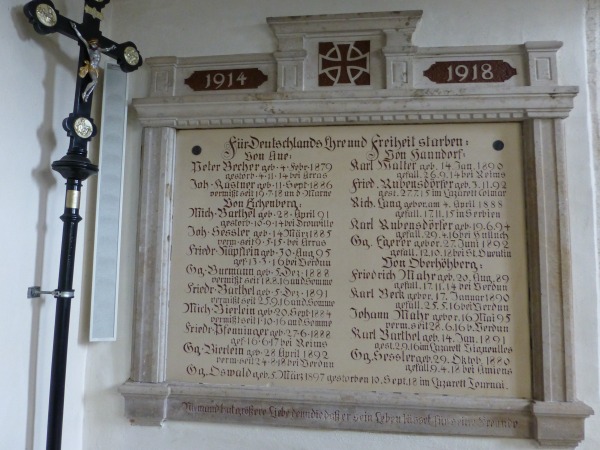 1914
1918
Für Deutschlands Ehre und Freiheit starben:
Von Aue:
Peter Becher geb. 4. Febr. 1879
gestorb. 4.11.14 bei Arras
Joh. Küstner geb. 11. Sept. 1886
vermißt seit 7.-18. an d. Marne
Von Eckenberg:
Mich. Barthel geb. 28. April 91
gestorb. 10.9.14 bei
Joh. Hessler geb. 14. März 1885
verm. seit 9.5.15 bei Arras
Friedr. Rupflein geb. 30. Aug. 95
gef. 13.3.16 bei Verdun
Gg. Burmann geb. 5. Dez. 1888
vermißt seit 18.8.16 and. Somme
Friedr. Barthel geb. 5. Dez. 1891
vermißt seit 25.9.16 and. Somme
Mich. Bierlein geb. 20. Sept. 1884
vermißt seit 1.10.16 and. Somme
Friedr. Pfenninger geb. 27.6.1888
gef. 16.6.17 bei Reims
Gg. Bierlein geb. 28. April 1892
verm. seit 24.8.18 bei Verdun
Von Hanndorf:
Karl Walter geb. 14. Jan. 1890
gefall. 26.9.14 bei Reims
Fried. Rubensdörfer geb. 3.11.92
gest. 27.7.15 im Lazarett Colmar
Rich. Lang geboren am 4. April 1888
gefall. 17.11.15 in Serbien
Karl Rubensdörfer geb. 19.6.94
gefall. 29.4.16 bei Hulluch
Gg. Egerer geber. 27. Juni 1892
gefall. 12.10.18 bei St. Quentin
Von Oberhöhberg:
Friedrich Mahr geb. 20. Aug. 89
gefall. 17.11.14 bei Verdun
Karl Beck geber. 17. Januar 1890
gefall. 25.5.16 bei Verdun
Johann Mahr geber. 16. Mai 95
verm. seit 28.6.16 b. Verdun
Karl Barthel geb. 14. Jan. 1891
gest. 29.16 im Lazarett Vigneulles
Gg. Hessler geb. 29. Oktbr. 1880
gefall. 9.4.18 bei Amiens
Gg. Oswald geb. 5. März 1897 gestorben 10. Sept. 18 im Lazarett Tournai.
Niemand hat größere Liebe denn die daß er sein Leben lässet für seine Freunde